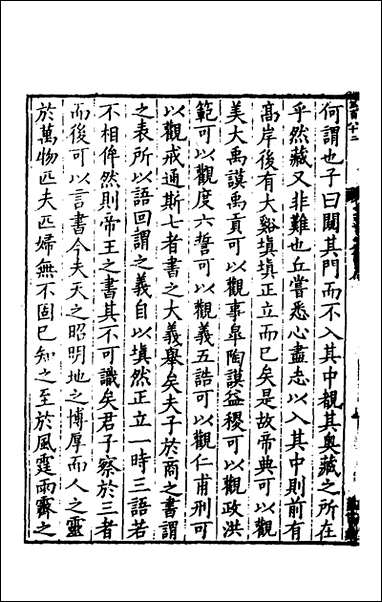 何謂也子曰闚其門而不入其中覩其奧藏之所在
乎然藏又非難也丘嘗悉心盡志以入其中則前有
高岸後有大谿塡塡正立而已矣是故帝典可以觀
美大禹謨禹貢可以觀事臯陶謨益稷可以觀政洪
範可以觀度六誓可以觀義五誥可以觀仁甫刑可
以觀戒通斯七者書之大義舉矣夫子於商之書謂
之表所以語回謂之義自以塡然正立一時三語若
不相侔然則帝王之書其不可識矣君子察於三者
而後可以言書今夫天之昭明地之博厚而人之靈
於萬物匹夫匹婦無不固已知之至於風霆雨霽之